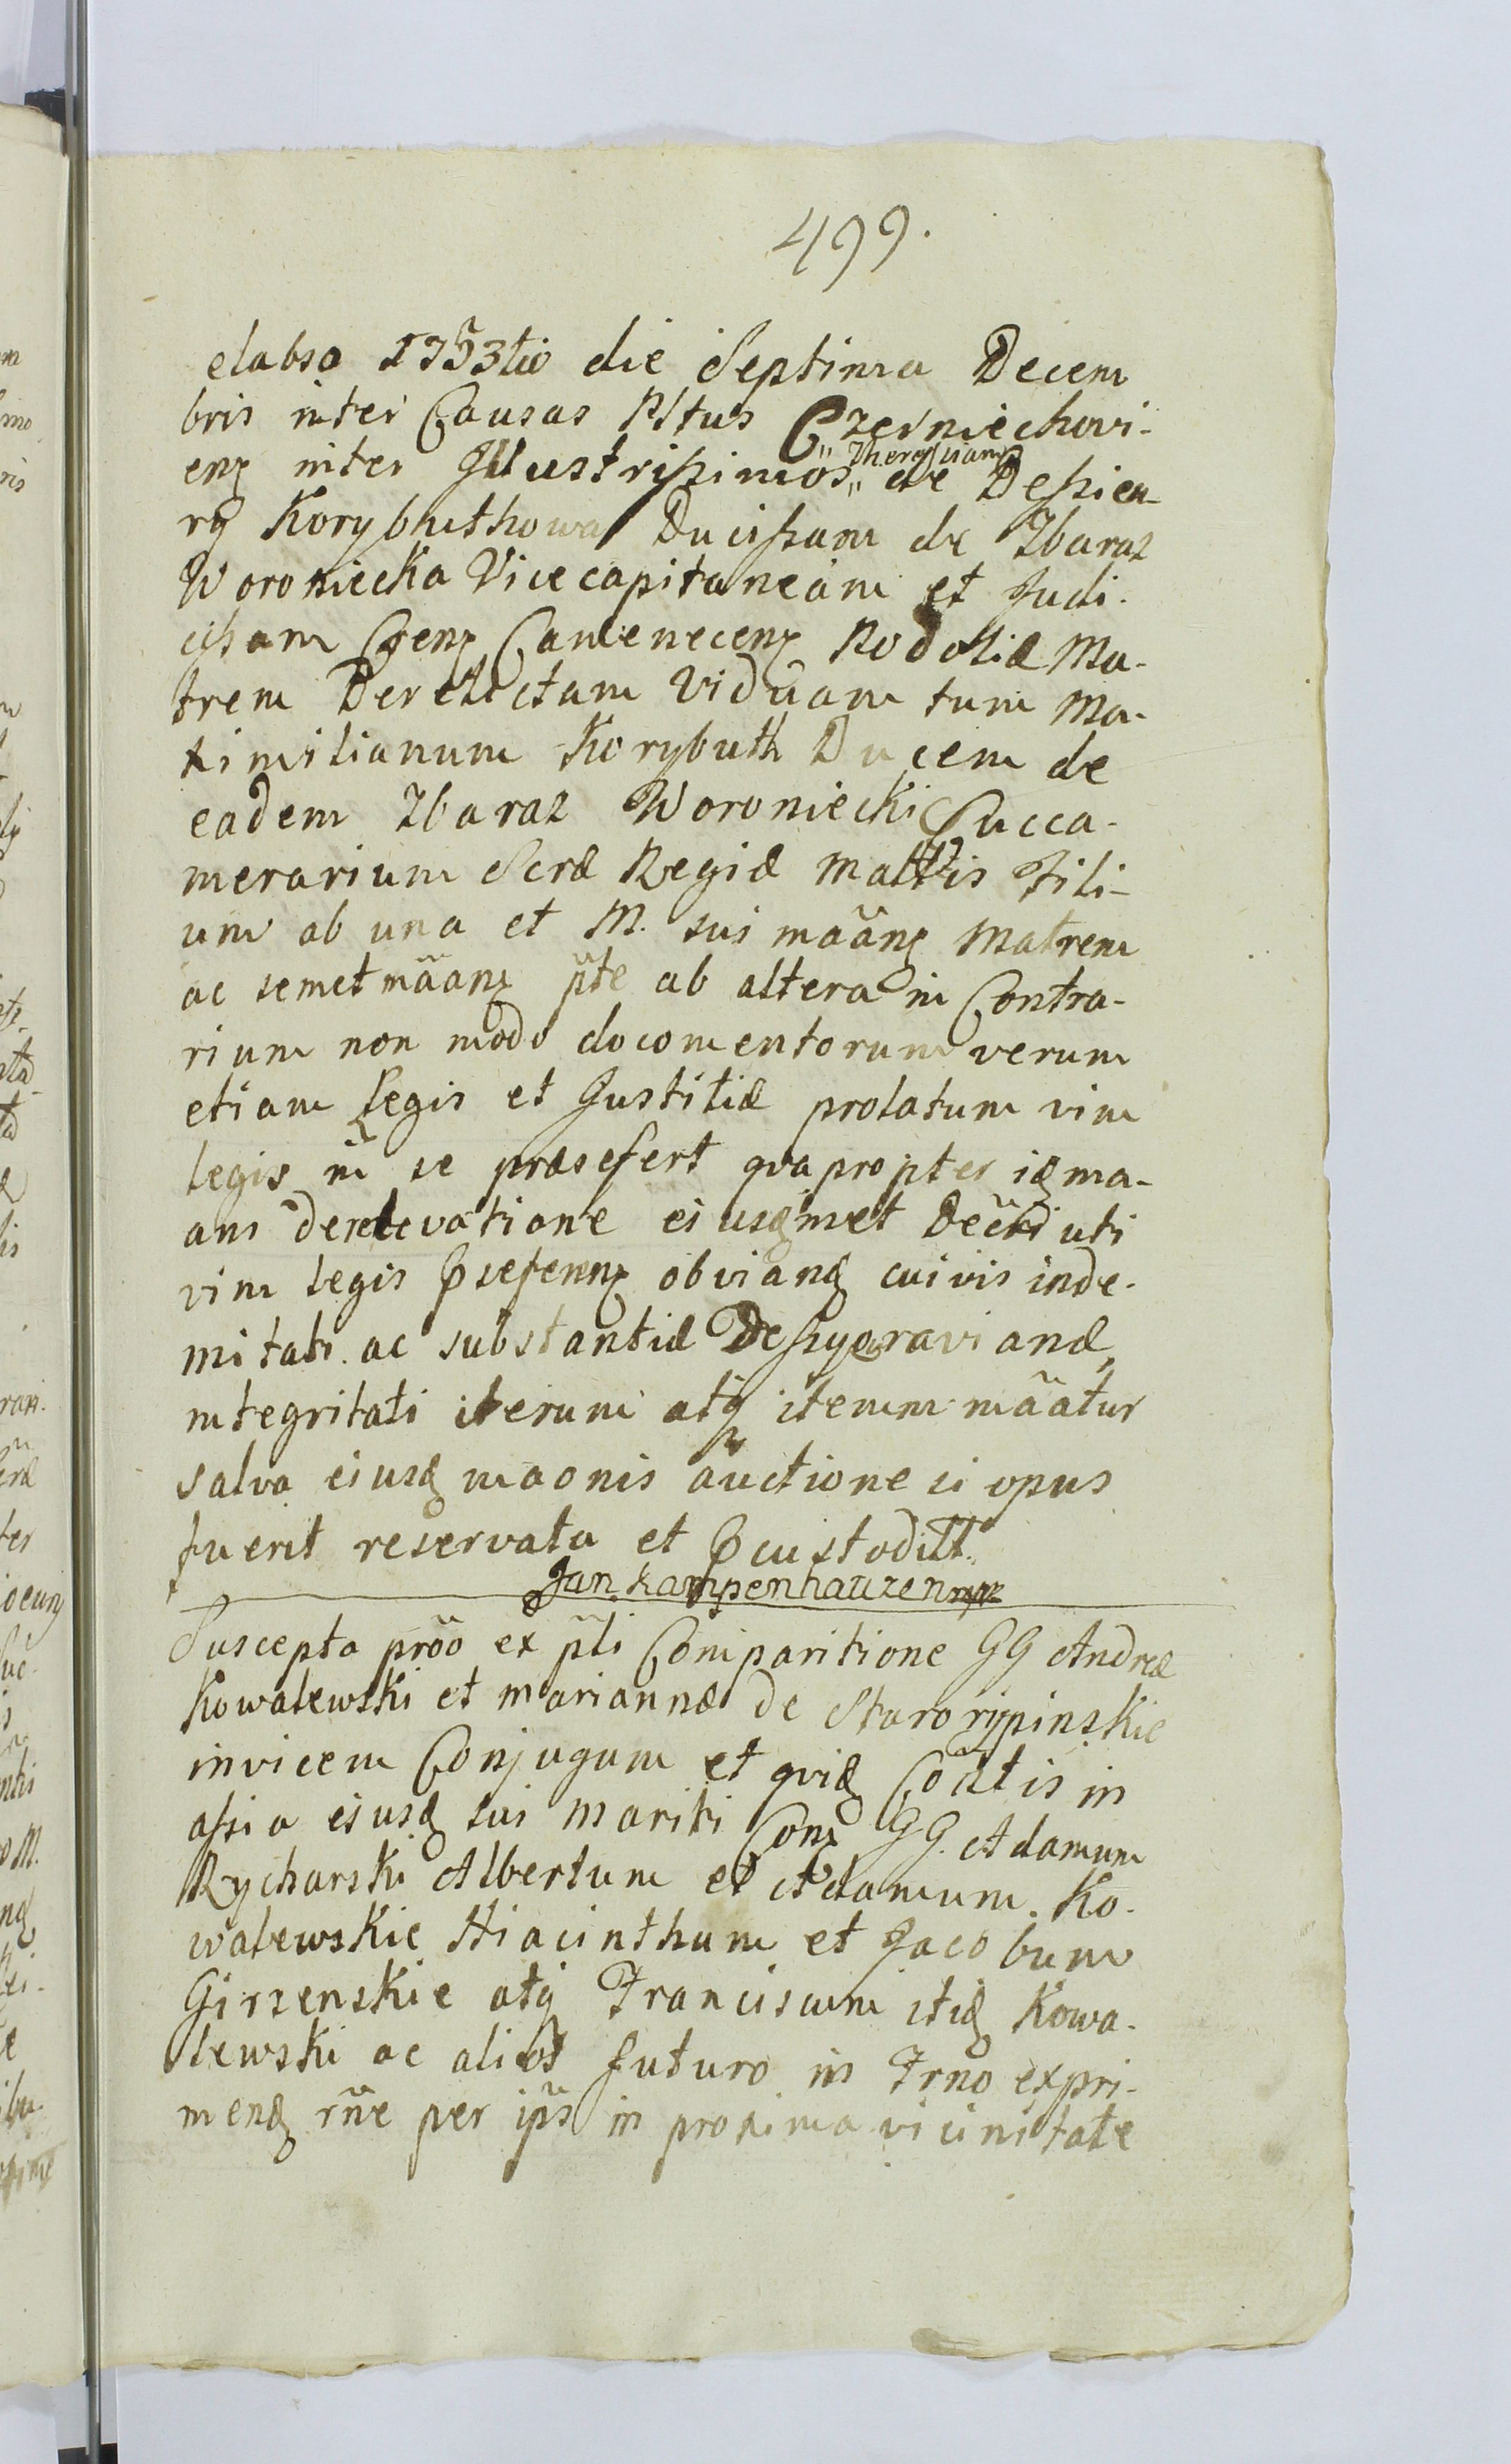 499.
elabso 1753tio die Septima Decem
bris inter Causas Pltus Czerniechovi-
enẓ inter Illustrißimos „ de Deßieu-
ry Korybuthowa Ducißam de Zbaraz
Woroniecka Vicecapitaneam et Judi-
cißam Cfenẓ Camenecenẓ Podoliæ Ma-
trem Derelictam Viduam tum Ma-
ximilianum Korybuth Ducem de
eadem Zbaraz Woroniecki Succa-
merarium Scræ Regiæ Mattis Fili-
um ab una et M. sui mãanẓ Matrem
ac semet mãanẓ p̃te ab altera in Contra-
rium non modo documentorum verum
etiam Legis et Justitiæ prolatum vim
legis in se præsefert qvapropter iꝗ ma-
ans derelevatione eiusꝗmet Decti uti
vim legis Pseferenẓ obvianꝗ cuivis inde-
mitati ac substantiæ Deßyeravianæ
integritati iterum atꝗ iterum mãatur
salva eiusꝗ maonis auctione si opus
fuerit reservata et Pcustoditt.
Jan Kampenhauzen mpr
Suscepta prõo ex p̃li Comparitione GG Andreæ
Kowalewski et Mariannæ de Starorypinskie
invicem Conjugum et qviꝗ Coatis in
aßia eiusꝗ sui Mariti Conẓ GG. Adamum
Rycharski Albertum et Adamum Ko-
walewskie Hiacinthum et Jacobum
Girzenskie atꝗ Franciscum itiꝗ Kowa-
lewski ac aliot futuro in Trno expri-
menꝗ rñe per ip̃s in proxima vicinitate